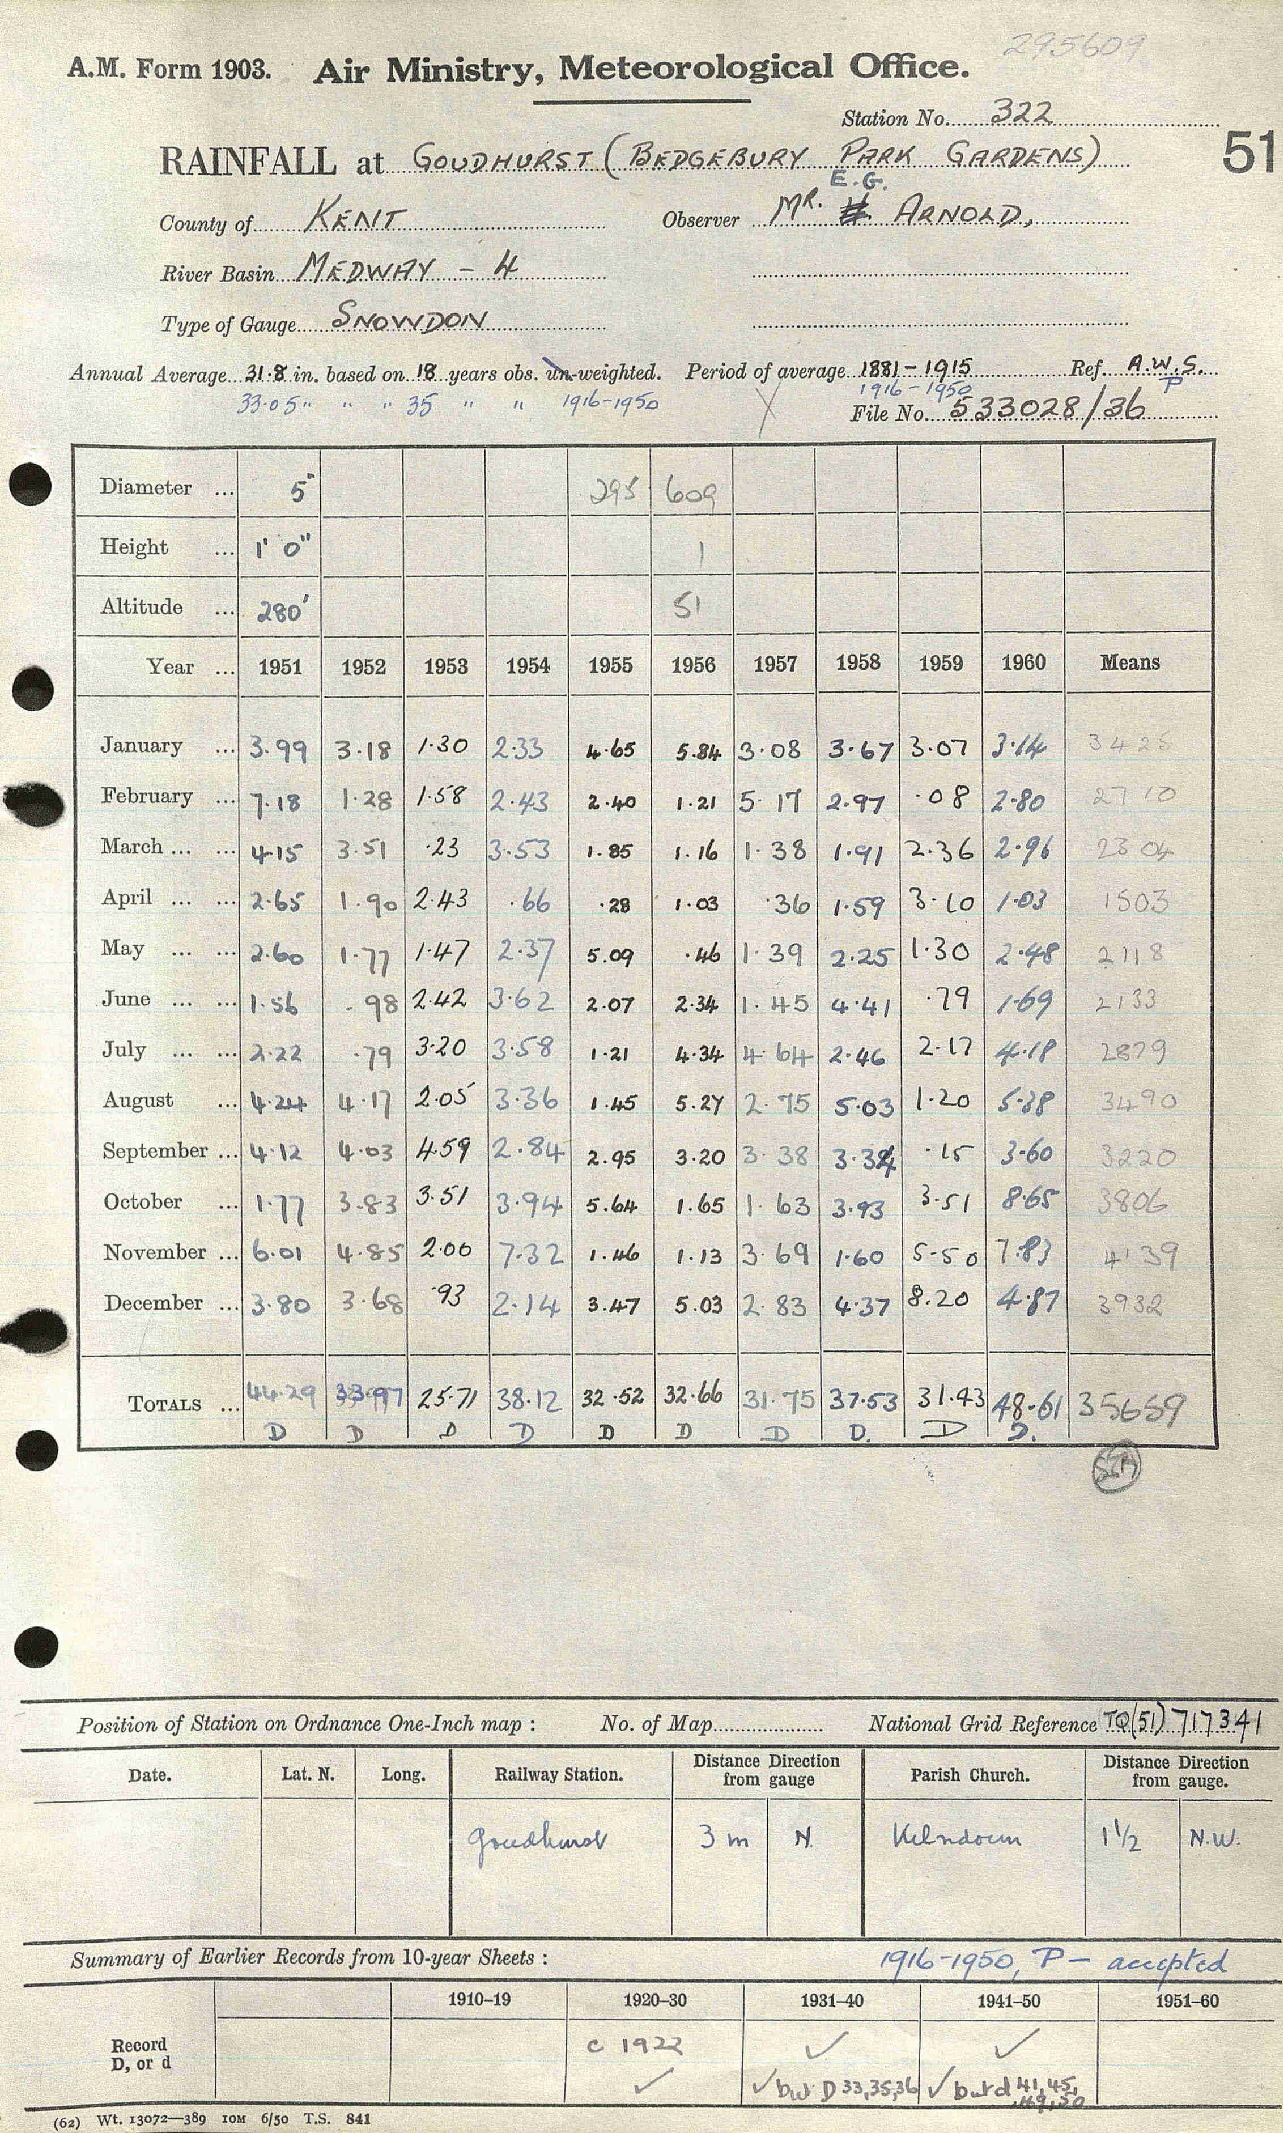 295609
A.M. Form 1903. Air Ministry, Meteorological Office.
Station No. 322
51
RAINFALL at GOUDHURST (BEDGEBURY PARK GARDENS)
E.G.
County of KENT Observer MR. H. ARNOLD,
River Basin MEDWAY - 4
Type of Gauge SNOWDON
Annual Average 31.8 in. based on 18 years obs. un-weighted. Period of average 1881-1915 Ref. A.W.S.
33.05 " " " 35 " " 1916-1950 1916-1950 P
File No. 533028/36
Diameter ... 5" 295 609
Height ... 1' 0" 1
Altitude ... 280' 51
Year ... 1951 1952 1953 1954 1955 1956 1957 1958 1959 1960 Means
January ... 3.99 3.18 1.30 2.33 4.65 5.84 3.08 3.67 3.07 3.14 3425
February ... 7.18 1.28 1.58 2.43 2.40 1.21 5.17 2.97 .08 2.80 2710
March ... ... 4.15 3.51 .23 3.53 1.85 1.16 1.38 1.91 2.36 2.96 2304
April ... ... 2.65 1.90 2.43 .66 .28 1.03 .36 1.59 3.10 1.03 1503
May ... ... 2.60 1.77 1.47 2.37 5.09 .46 1.39 2.25 1.30 2.48 2118
June ... ... 1.56 .98 2.42 3.62 2.07 2.34 1.45 4.41 .79 1.69 2133
July ... ... 2.22 .79 3.20 3.58 1.21 4.34 4.64 2.46 2.17 4.18 2879
August ... 4.24 4.17 2.05 3.36 1.45 5.27 2.75 5.03 1.20 5.38 3490
September ... 4.12 4.03 4.59 2.84 2.95 3.20 3.38 3.34 .15 3.60 3220
October ... 1.77 3.83 3.51 3.94 5.64 1.65 1.63 3.93 3.51 8.65 3806
November ... 6.01 4.85 2.00 7.32 1.46 1.13 3.69 1.60 5.50 7.83 4139
December ... 3.80 3.68 .93 2.14 3.47 5.03 2.83 4.37 8.20 4.87 3932
TOTALS ... 44.29 33.97 25.71 38.12 32.52 32.66 31.75 37.53 31.43 48.61 35659
D D D D D D D D. D D.
Position of Station on Ordnance One-Inch map : No. of Map National Grid Reference TQ(51) 717341
Date. Lat. N. Long. Railway Station. Distance from gauge Direction Parish Church. Distance from gauge. Direction
Goudhurst 3 m N. Kilndown 1 1/2 N.W.
Summary of Earlier Records from 10-year Sheets : 1916-1950, P - accepted
1910–19 1920–30 1931–40 1941–50 1951–60
Record D, or d c 1922 ✓ ✓
✓ ✓ but D 33,35,36 ✓ but d 41,45,
,49,50
(62) Wt. 13072—389 10M 6/50 T.S. 841